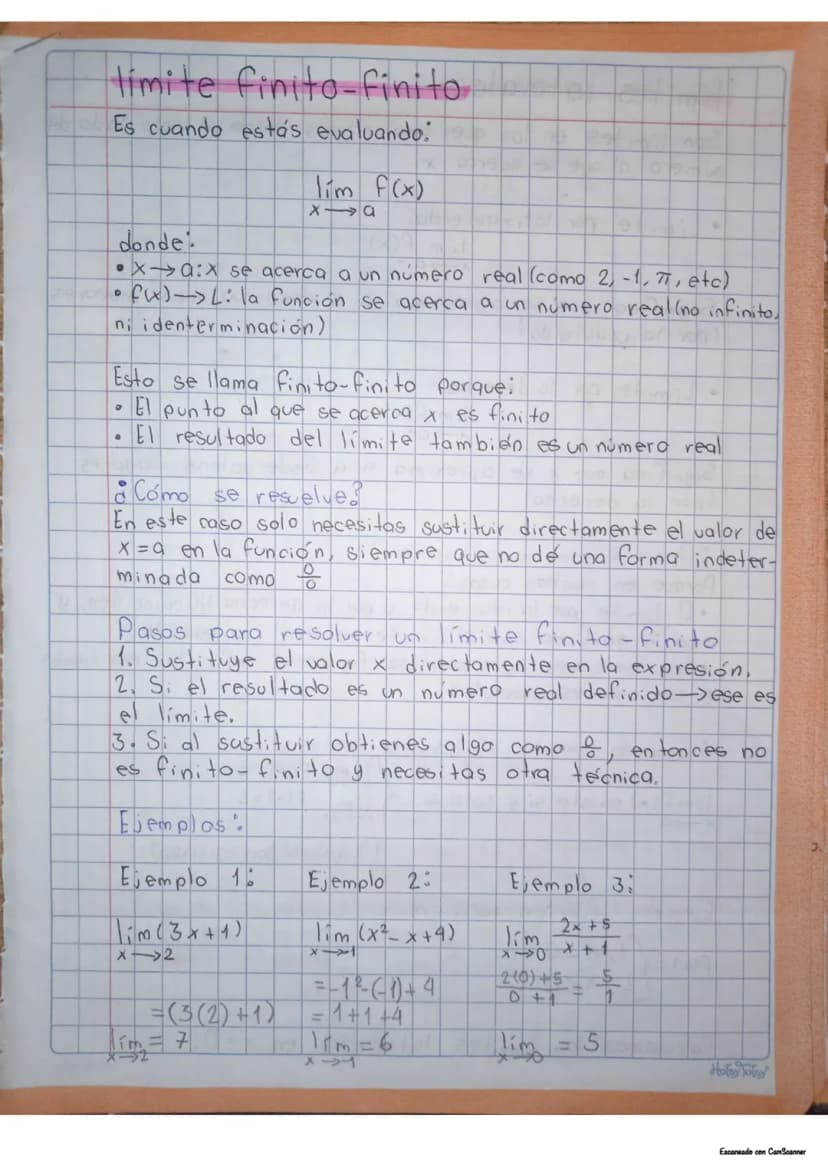 límite finito-finito
Es cuando estás evaluando:
lím f(x)
x→a
donde:
• x→a: x se acerca a un número real (como 2, -1, π, etc)
• f(x)→L: la función se acerca a un número real (no infinito,
ni identerminación)
Esto se llama finito-finito porque:
• El punto al que se acerca x es finito
• El resultado del límite también es un número real
¿Cómo se resuelve?
En este caso solo necesitas sustituir directamente el valor de
x=a en la función, siempre que no dé una forma indeter-
minada como 0/0
Pasos para resolver un límite finito-finito
1. Sustituye el valor x directamente en la expresión.
2. Si el resultado es un número real definido→ese es
el límite.
3. Si al sustituir obtienes algo como 0/0, entonces no
es finito-finito y necesitas otra técnica.
Ejemplos:
Ejemplo 1: Ejemplo 2: Ejemplo 3:
lím(3x+1) lím(x²-x+4) lím 2x+5/x+1
x→2 x→-1 x→0
=-1²-(-1)+4 2(0)+5/0+1 = 5/1
=(3(2)+1) =1+1+4
lím = 7 lím = 6 lím = 5
x→2 x→-1 x→0
HobyToby
Escaneado con CamScanner